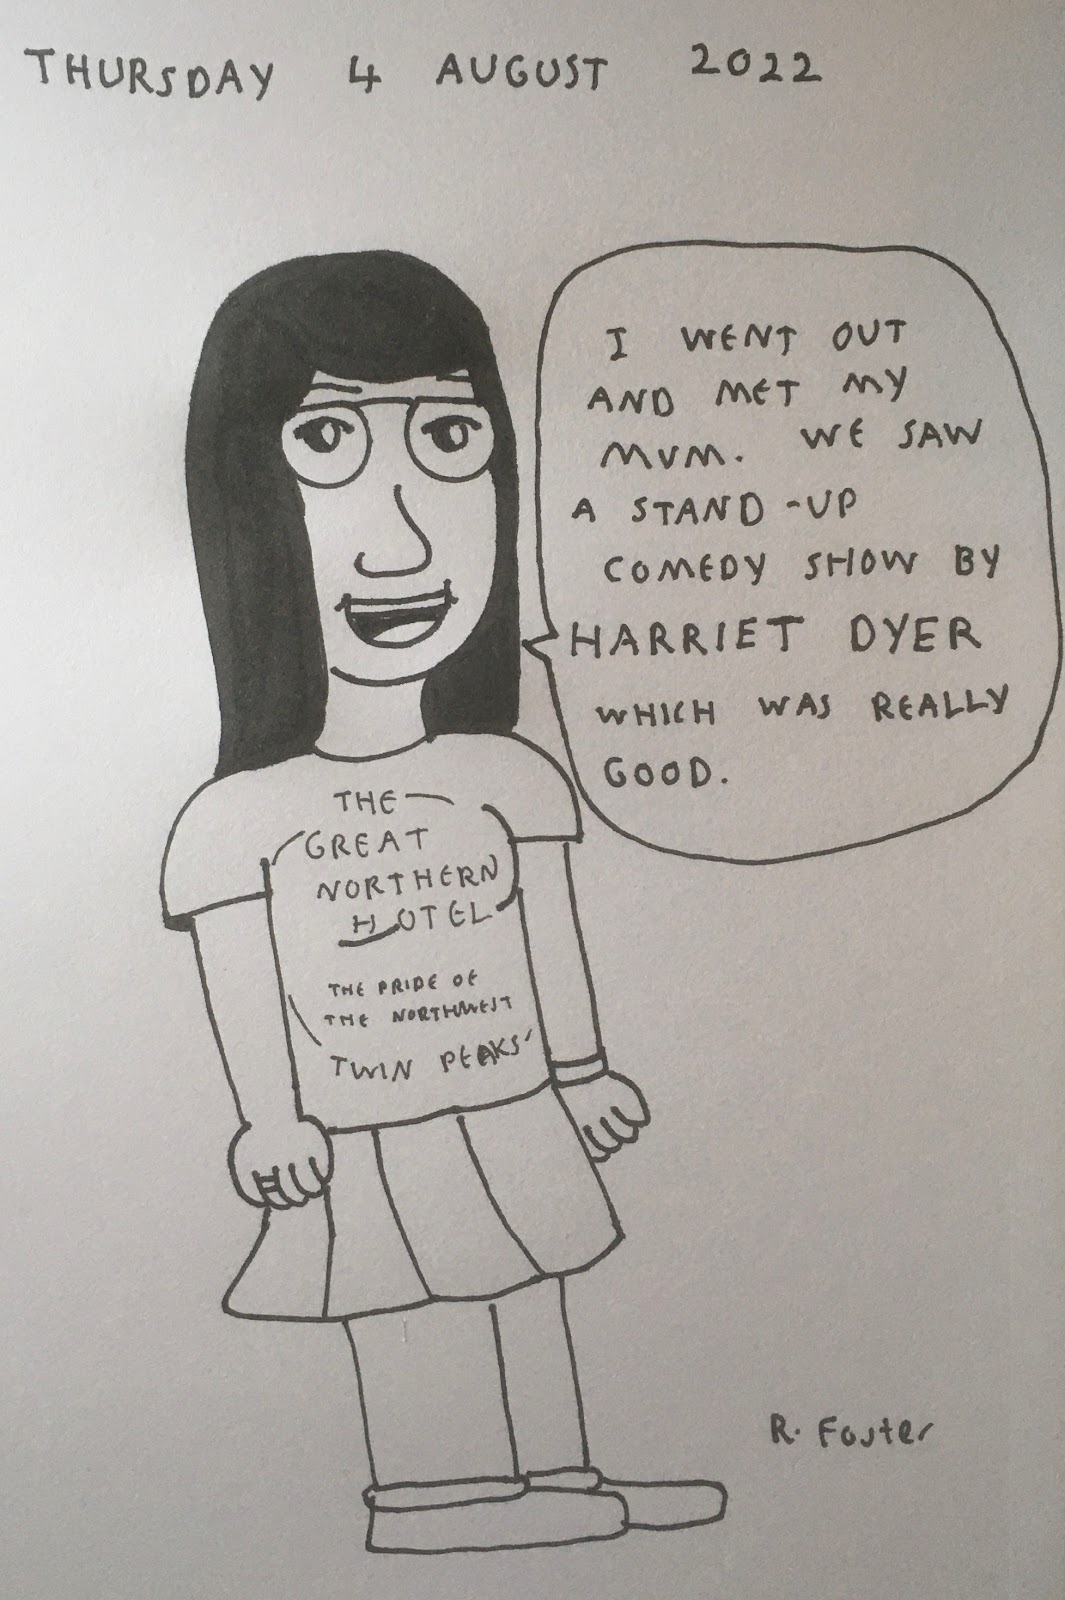 THURSDAY 4 AUGUST 2022
I WENT OUT
AND MET MY
MUM. WE SAW
A STAND-UP
COMEDY SHOW BY
HARRIET DYER
WHICH WAS REALLY
GOOD.
THE
GREAT
NORTHERN
HOTEL
THE PRIDE OF
THE NORTHWEST
TWIN PEAKS
R. Foster